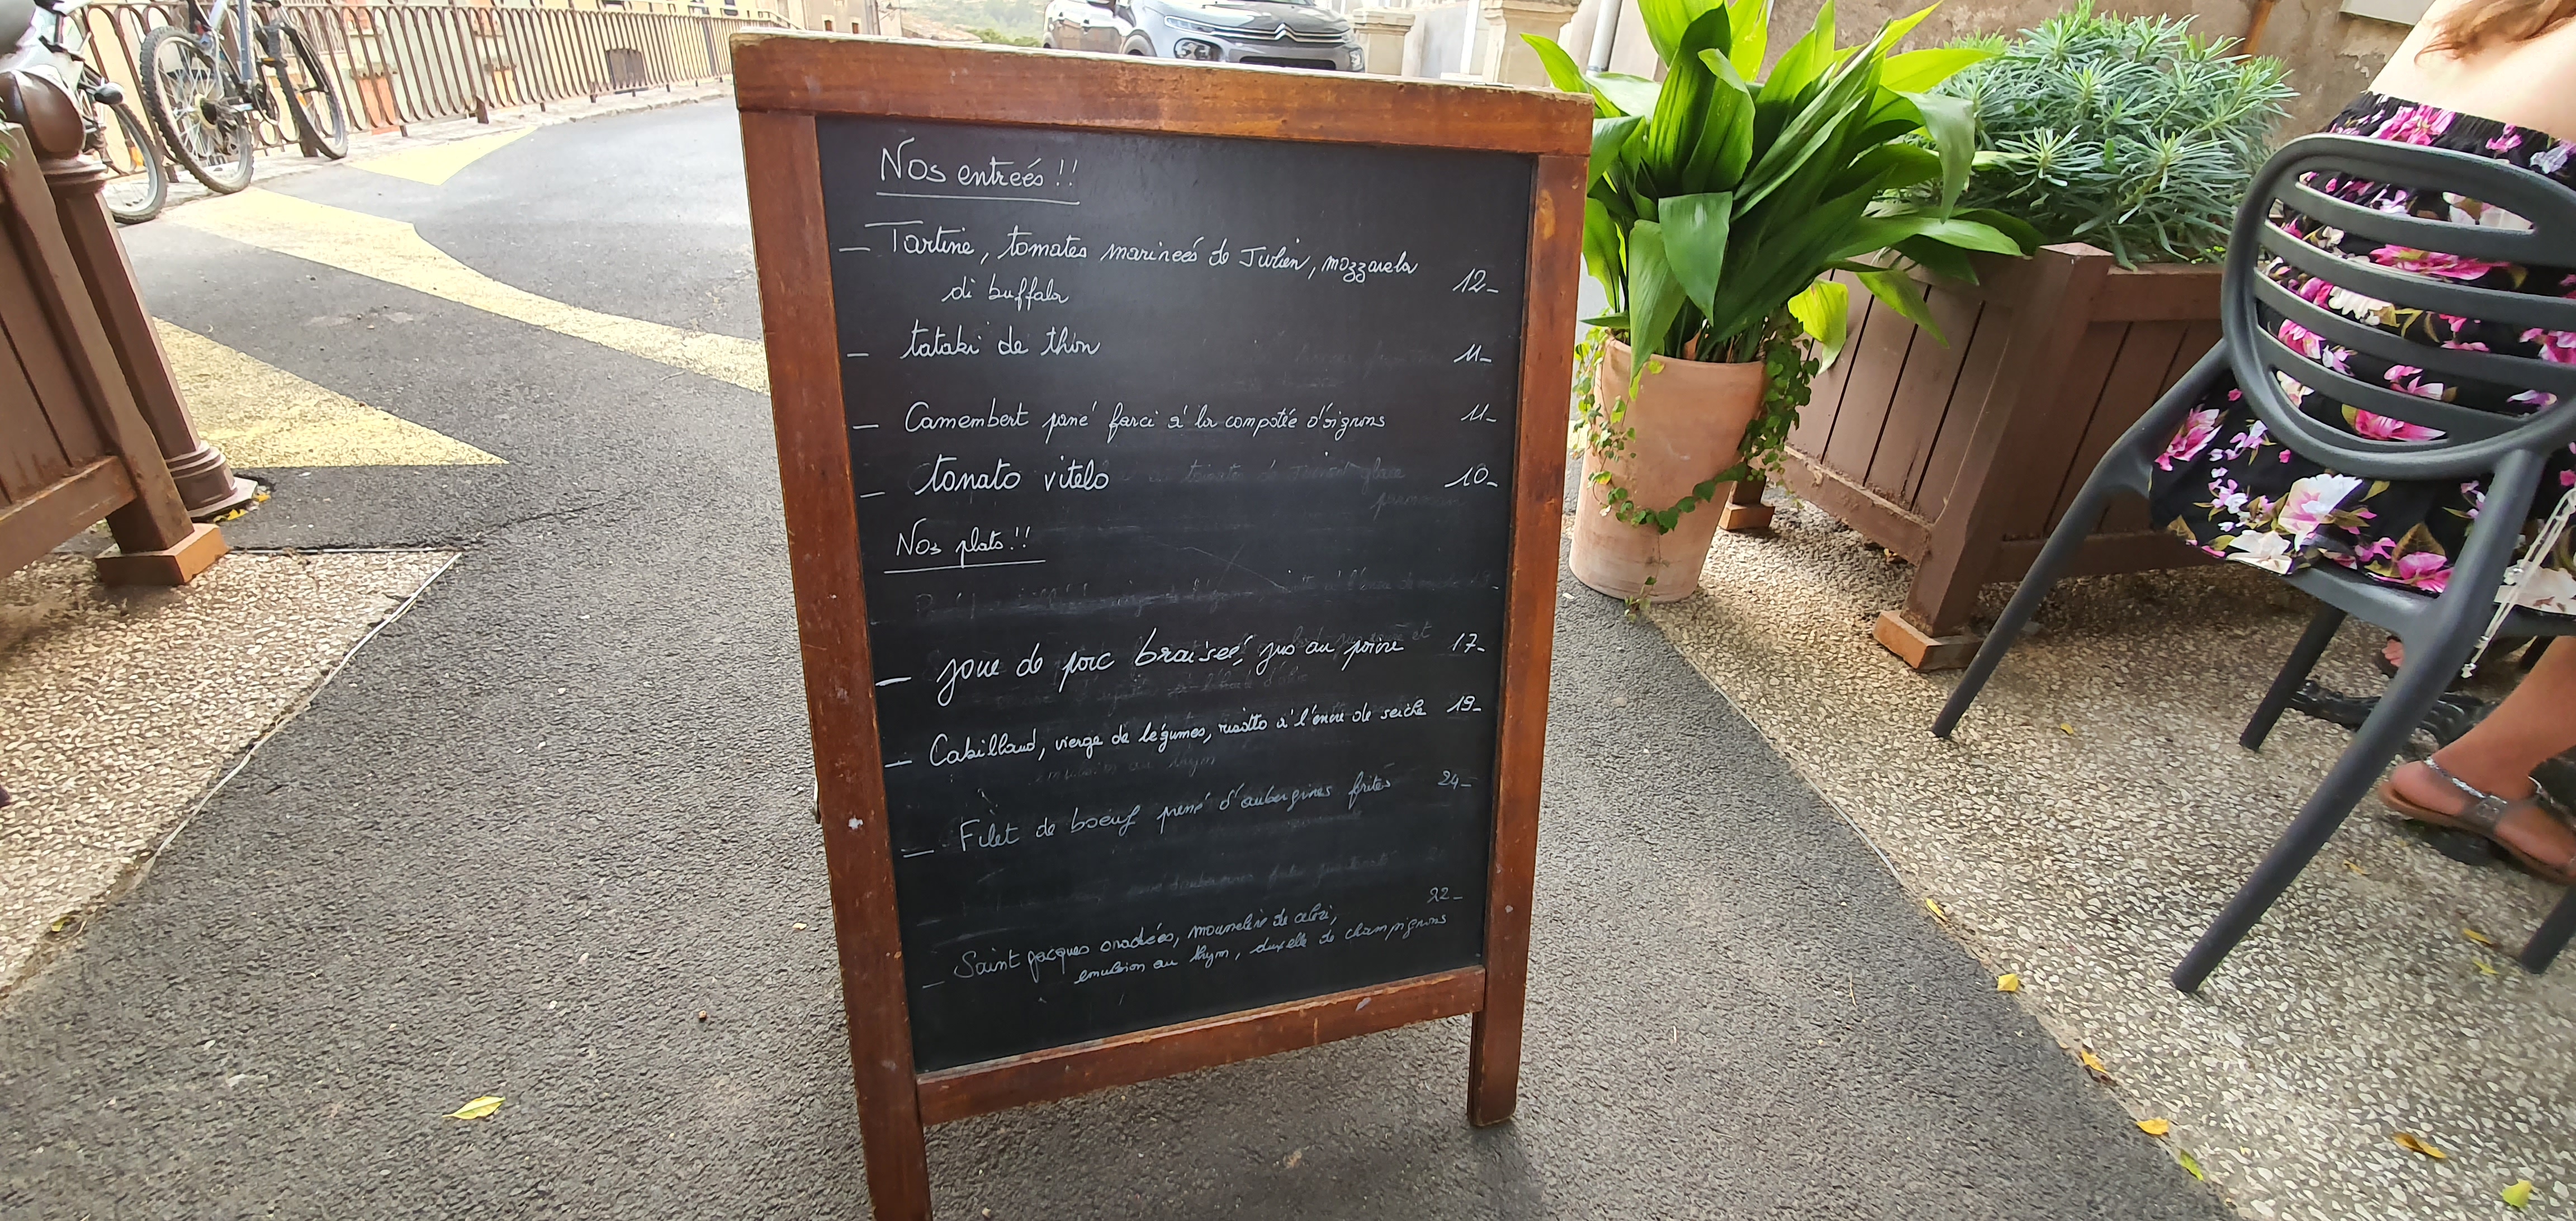 Nos entreés !!
- Tartine, tomates marineés de Julien, mozzarela 12-
di buffala
- tataki de thon 11-
- Camembert pané farci à la compotée d'oignons 11-
- tonato vitelo 10-
Nos plats !!
- joue de porc braiseé, jus au poivre 17-
- Cabillaud, vierge de légumes, risotto à l'encre de seiche 19-
- Filet de boeuf pané d'aubergines frites 24-
22-
- Saint jacques snackées, mousseline de celeri,
emulsion au thym, duxelle de champignons